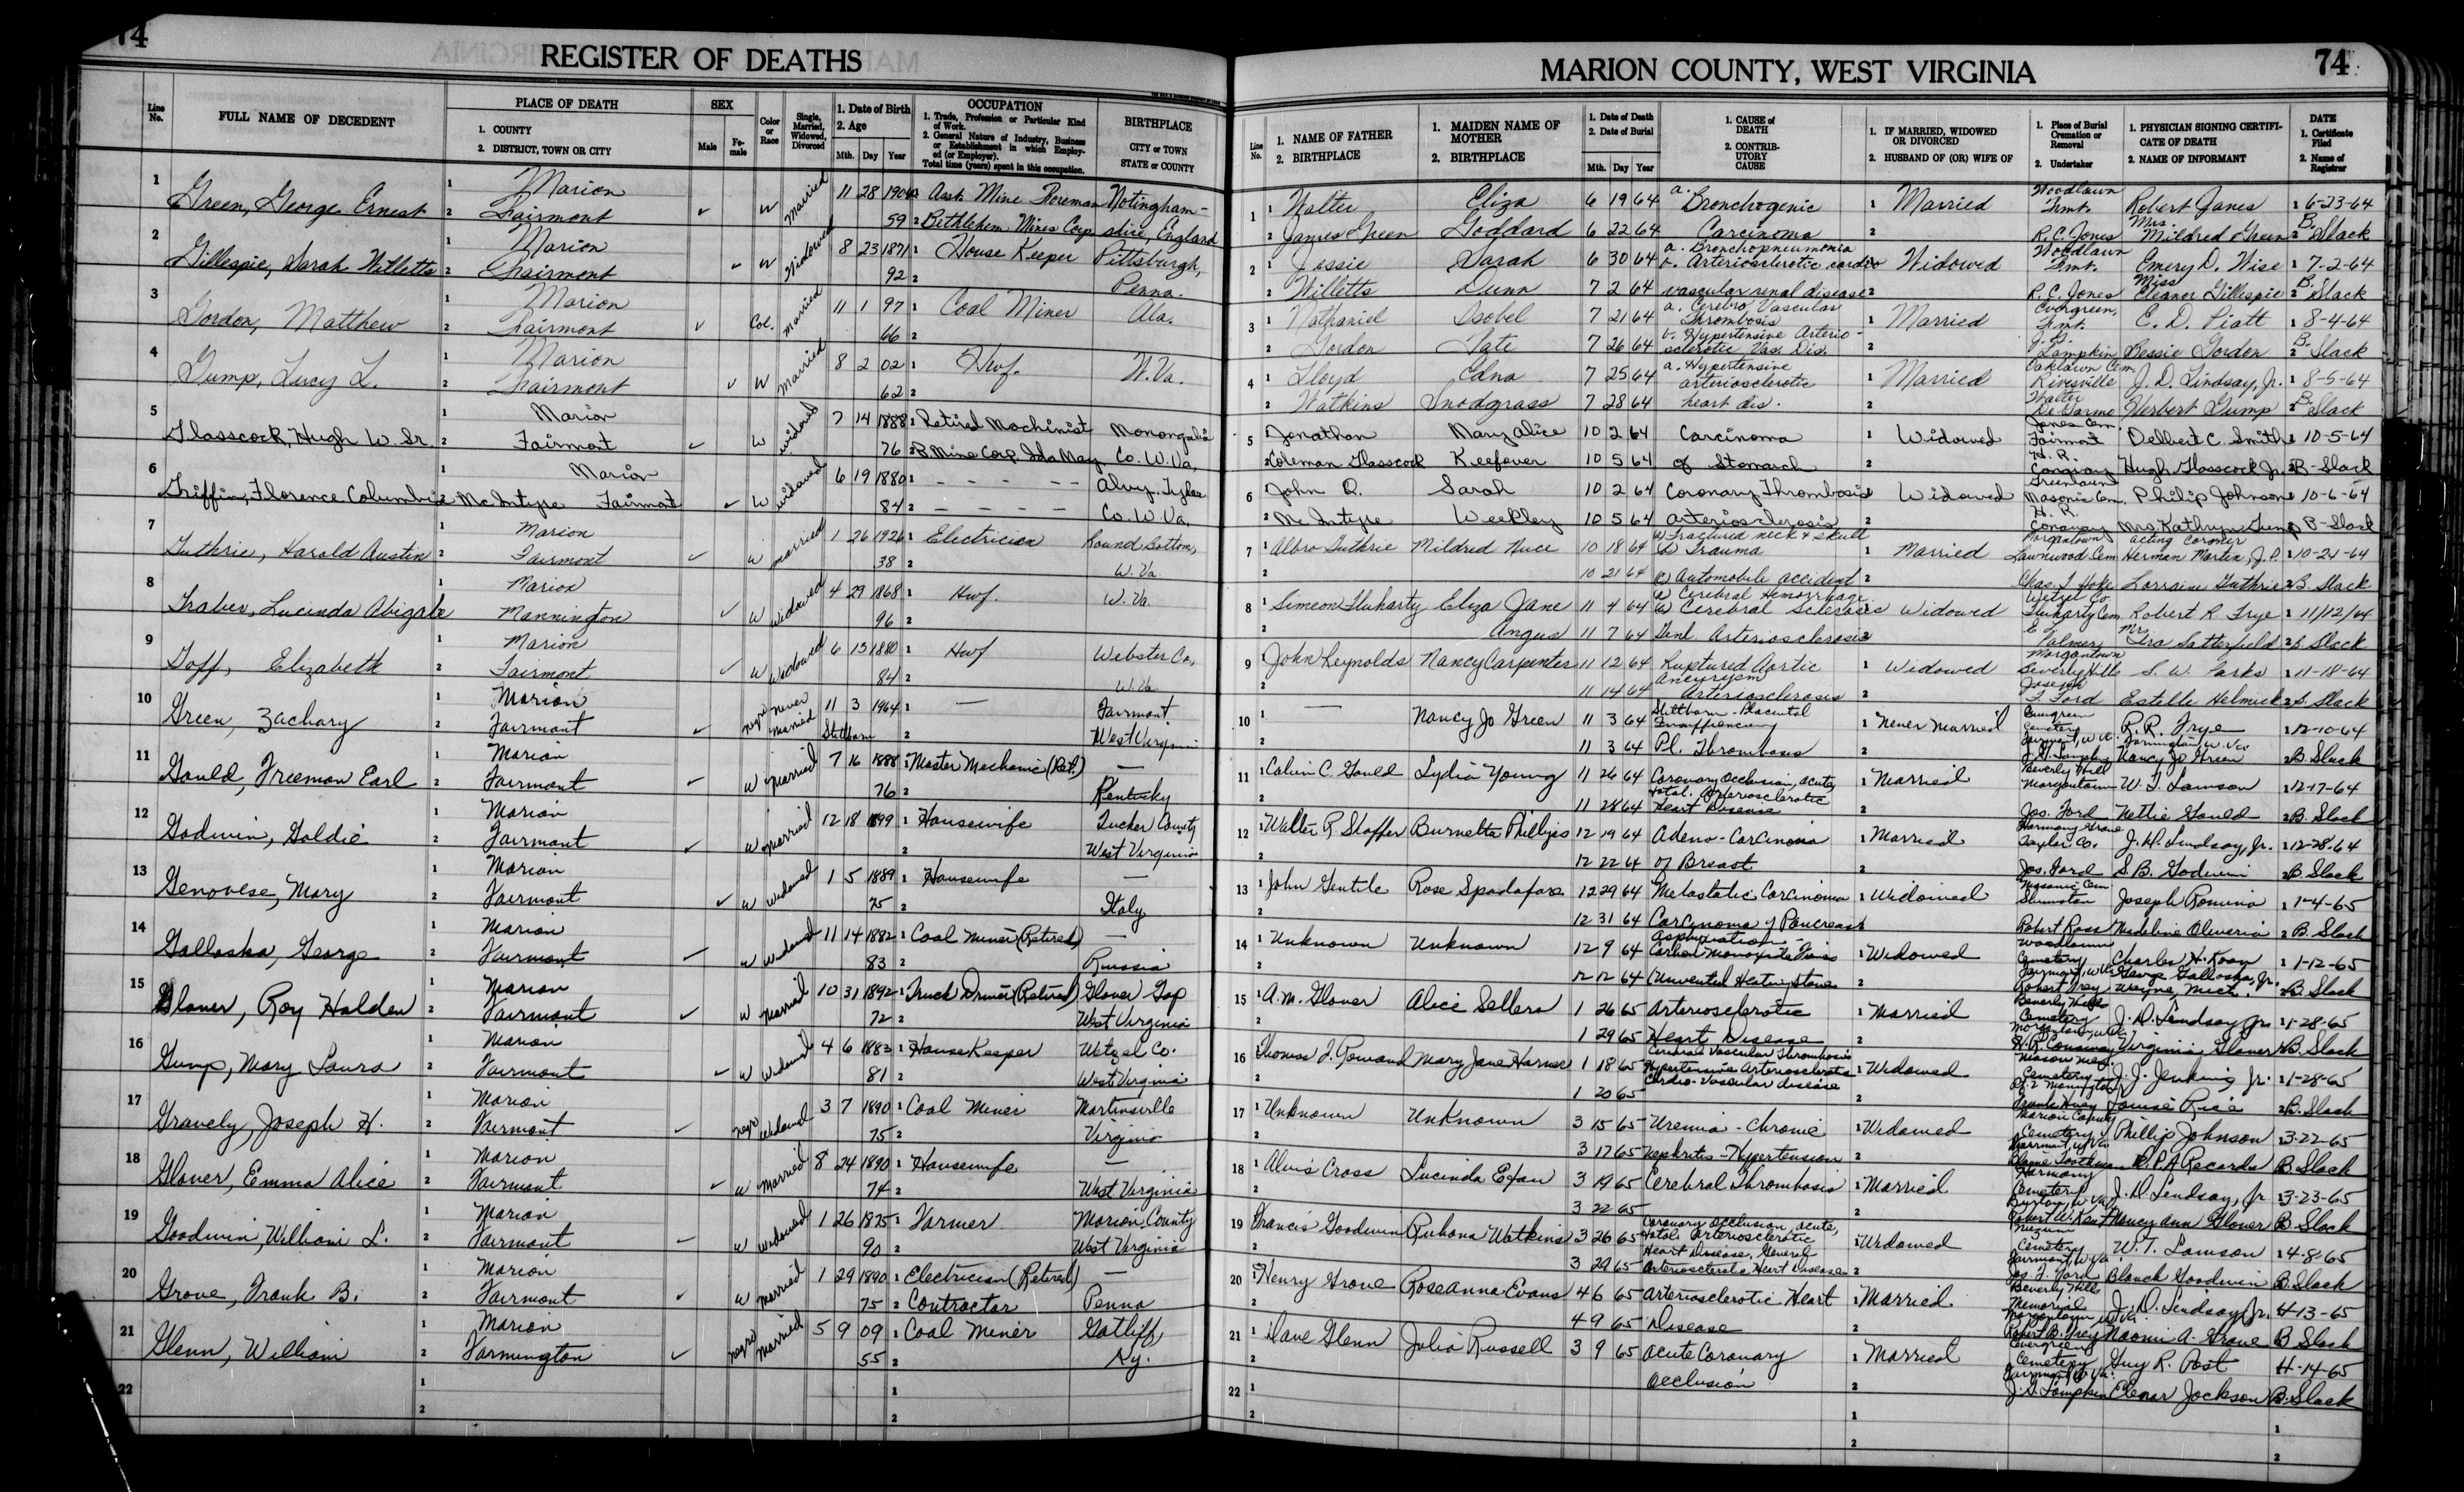 74
REGISTER OF DEATHS
Line No. FULL NAME OF DECEDENT PLACE OF DEATH 1. COUNTY 2. DISTRICT, TOWN OR CITY SEX Male Female Color or Race Single, Married, Widowed, Divorced 1. Date of Birth 2. Age Mth. Day Year OCCUPATION 1. Trade, Profession or Particular Kind of Work. 2. General Nature of Industry, Business or Establishment in which Employed (or Employer). Total time (years) spent in this occupation. BIRTHPLACE CITY or TOWN STATE or COUNTY
1 Green, George Ernest 1 Marion ✓ W Married 11 28 1904 1 Asst Mine Foreman Notingham-
2 Fairmont 59 2 Bethlehem Mines Corp. shire, England
2 Gillespie, Sarah Willetts 1 Marion ✓ W Widowed 8 23 1871 1 House Keeper Pittsburgh,
2 Fairmont 92 2 Penna.
3 Gordon, Matthew 1 Marion ✓ Col. Married 11 1 97 1 Coal Miner Ala.
2 Fairmont 66 2
4 Gump, Lucy L. 1 Marion ✓ W Married 8 2 02 1 Hwf. W.Va.
2 Fairmont 62 2
5 Glasscock, Hugh W. Sr. 1 Marion ✓ W widowed 7 14 1888 1 Retired Machinist Monongalia
2 Fairmont 76 2 Mine Corp. Ida May Co. W.Va.
6 Griffin, Florence Columbia 1 Marion ✓ W widowed 6 19 1880 1 - - - - - Alvy. Tyler
2 McIntyre Fairmont 84 2 - - - - Co. W.Va.
7 Guthrie, Harold Austin 1 Marion ✓ W married 1 26 1926 1 Electrician Round Bottom,
2 Fairmont 38 2 W.Va.
8 Graber, Lucinda Abigale 1 Marion ✓ W Widowed 4 29 1868 1 Hwf. W.Va.
2 Mannington 96 2
9 Goff, Elizabeth 1 Marion ✓ W Widowed 6 13 1880 1 Hwf Webster Co,
2 Fairmont 84 2 W.Va.
10 Green, Zachary 1 Marion ✓ negro never married 11 3 1964 1 — Fairmont
2 Fairmont Stillborn 2 West Virginia
11 Gould, Freeman Earl 1 Marion ✓ W Married 7 16 1888 1 Master Mechanic (Ret.) —
2 Fairmont 76 2 Kentucky
12 Godwin, Goldie 1 Marion ✓ W Married 12 18 1899 1 Housewife Tucker County
2 Fairmont 2 West Virginia
13 Genovese, Mary 1 Marion ✓ W Widowed 1 5 1889 1 Housewife —
2 Fairmont 75 2 Italy
14 Galloska, George 1 Marion ✓ W Widowed 11 14 1882 1 Coal Miner (Retired) —
2 Fairmont 83 2 Russia
15 Glover, Roy Holden 1 Marion ✓ W Married 10 31 1892 1 Truck Driver (Retired) Glover Gap
2 Fairmont 72 2 West Virginia
16 Gump, Mary Laura 1 Marion ✓ W Widowed 4 6 1883 1 House Keeper Wetzel Co.
2 Fairmont 81 2 West Virginia
17 Gravely, Joseph H. 1 Marion ✓ negro Widowed 3 7 1890 1 Coal Miner Martinsville
2 Fairmont 75 2 Virginia
18 Glover, Emma Alice 1 Marion ✓ W Married 8 24 1890 1 Housewife —
2 Fairmont 74 2 West Virginia
19 Goodwin, William L. 1 Marion ✓ W Widowed 1 26 1875 1 Farmer Marion County
2 Fairmont 90 2 West Virginia
20 Grove, Frank B. 1 Marion ✓ W Married 1 29 1890 1 Electrician (Retired) —
2 Fairmont 75 2 Contractor Penna
21 Glenn, William 1 Marion ✓ negro Married 5 9 09 1 Coal Miner Gatliff,
2 Farmington 55 2 Ky.
22 1 1
2 2
MARION COUNTY, WEST VIRGINIA
74
Line No. 1. NAME OF FATHER 2. BIRTHPLACE 1. MAIDEN NAME OF MOTHER 2. BIRTHPLACE 1. Date of Death 2. Date of Burial Mth. Day Year 1. CAUSE of DEATH 2. CONTRIBUTORY CAUSE 1. IF MARRIED, WIDOWED OR DIVORCED 2. HUSBAND OF (OR) WIFE OF 1. Place of Burial Cremation or Removal 2. Undertaker 1. PHYSICIAN SIGNING CERTIFICATE OF DEATH 2. NAME OF INFORMANT DATE 1. Certificate Filed 2. Name of Registrar
1 1 Walter Eliza 6 19 64 a. Bronchogenic 1 Married Woodlawn Fmt. Robert Janes 1 6-23-64
2 James Green Goddard 6 22 64 Carcinoma 2 R.C. Jones Mrs. Mildred Green 2 B. Slack
2 1 Jessie Sarah 6 30 64 a. Bronchopneumonia b. Arteriosclerotic cardio Widowed Woodlawn Fmt. Emery D. Wise 1 7-2-64
2 Willetts Dunn 7 2 64 vascular renal disease 2 R.C. Jones Miss Eleanor Gillespie 2 B. Slack
3 1 Nathaniel Isobel 7 21 64 a. Cerebro Vascular Thrombosis 1 Married Evergreen, Fmt. E. D. Piatt 1 8-4-64
2 Gordon Tate 7 26 64 b. Hypertensive Arterio-sclerotic Vas. Dis. 2 J.G. Lampkin Bessie Gordon 2 B. Slack
4 1 Lloyd Edna 7 25 64 a. Hypertensive arteriosclerotic 1 Married Oaklawn Cem, Rivesville J. D. Lindsay, Jr. 1 8-5-64
2 Watkins Snodgrass 7 28 64 heart dis. 2 Walter DeGarmo Herbert Gump 2 B. Slack
5 1 Jonathan Mary Alice 10 2 64 Carcinoma 1 Widowed Jones Cem. Fairmont Delbert C. Smith 1 10-5-64
2 Coleman Glasscock Keefover 10 5 64 of Stomach 2 H. R. Conaway Hugh Glasscock Jr. 2 B. Slack
6 1 John D. Sarah 10 2 64 Coronary Thrombosis 1 Widowed Masonic Cem. Philip Johnson 1 10-6-64
2 McIntyre Weekley 10 5 64 arteriosclerosis 2 H. R. Conaway Mrs. Kathryn Gump 2 B. Slack
7 1 Albro Guthrie Mildred Nuce 10 18 64 (a) Fractured neck & skull (b) Trauma 1 Married Morgantown Lawnwood Cem. acting Coroner Herman Martin, J.P. 1 10-21-64
2 10 21 64 (c) Automobile accident 2 Chas. L. Hoke Lorraine Guthrie 2 B. Slack
8 1 Simeon Fluharty Eliza Jane 11 4 64 (a) Cerebral Hemorrhage (b) Cerebral Sclerosis Widowed Wetzel Co. Fluharty Cem Robert R Frye 1 11/12/64
2 Angus 11 7 64 Genl. Arteriosclerosis 2 Palmer Mrs Ira Satterfield 2 B. Slack
9 1 John Reynolds Nancy Carpenter 11 12 64 Ruptured Aortic Aneurysm 1 Widowed Morgantown Beverly Hills S. W. Parks 1 11-18-64
2 11 14 64 Arteriosclerosis 2 Joseph F Ford Estelle Helmick 2 B. Slack
10 1 — Nancy Jo Green 11 3 64 Stillborn - Placental Insufficiency 1 Never Married Evergreen Cemetery R. R. Frye 1 12-10-64
2 11 3 64 Pl. Thrombosis 2 Fairmont, W.Va. J. G. Lampkin Farmington, W.Va. Nancy Jo Green 2 B. Slack
11 1 Calvin C. Gould Lydia Young 11 26 64 Coronary Occlusion, acute, 1 Married Beverly Hill Morgantown W. T. Lawson 1 12-17-64
2 11 28 64 total. Arteriosclerotic Heart Disease 2 Jos. Ford Nettie Gould 2 B. Slack
12 1 Walter R. Shaffer Burnetta Phillips 12 19 64 Adeno-Carcinoma 1 Married Harmony Grove Taylor Co. J. D. Lindsay, Jr. 1 12-28-64
2 12 22 64 of Breast 2 Jos. Ford S. B. Godwin 2 B. Slack
13 1 John Gentile Rose Spadafore 12 29 64 Metastatic Carcinoma 1 Widowed Masonic Cem Shinnston Joseph Romino 1 1-4-65
2 12 31 64 Carcinoma of Pancreas 2 Robert Ross Madeline Oliverio 2 B. Slack
14 1 Unknown Unknown 12 9 64 Asphyxiation - Carbon Monoxide Fumes 1 Widowed Woodlawn Cemetery Charles H. Koon 1 1-12-65
2 12 12 64 (Unvented Heating Stove 2 Fairmont, W.Va. Robert Frey George Galloska, Jr. Wayne, Mich. 2 B. Slack
15 1 A.M. Glover Alice Sellers 1 26 65 Arteriosclerotic 1 Married Beverly Hills Cemetery J. D. Lindsay Jr. 1 1-28-65
2 1 29 65 Heart Disease 2 Morgantown, W.Va. H.R. Conaway Virginia Glover 2 B. Slack
16 1 Thomas J. Rowand Mary Jane Harner 1 18 65 Cerebral Vascular Thrombosis Hypertensive Arteriosclerotic 1 Widowed Cemetery J. J. Jenkins Jr. 1 1-28-65
2 1 20 65 Cardio-Vascular disease 2 Rt. 2 Mannington Frank Huey Louise Rice 2 B. Slack
17 1 Unknown Unknown 3 15 65 Uremia - Chronic 1 Widowed Marion County Cemetery Phillip Johnson 1 3-22-65
2 3 17 65 Nephritis - Hypertension 2 Fairmont, W.Va. D.P.A Records B. Slack
18 1 Alvis Cross Lucinda Efaw 3 19 65 Cerebral Thrombosis 1 Married Harmony Cemetery J. D. Lindsay, Jr 1 3-23-65
2 3 22 65 2 Robert W. Kent Nancy Ann Glover B. Slack
19 1 Francis Goodwin Ruhana Watkins 3 26 65 Coronary Occlusion, acute, total. Arteriosclerotic 1 Widowed Nuzum Cemetery W. T. Lawson 1 4-8-65
2 3 29 65 Heart Disease, General Arteriosclerotic Heart Disease 2 Fairmont, W.Va. Jos. F. Ford Blanch Goodwin B. Slack
20 1 Henry Grove Roseanna Evans 4 6 65 Arteriosclerotic Heart 1 Married Beverly Hills Memorial J. D. Lindsay Jr. 4-13-65
2 4 9 65 Disease 2 Morgantown W.Va. Robert B. Frey Naomi A. Grove B Slack
21 1 Dave Glenn Julia Russell 3 9 65 Acute Coronary 1 Married Evergreen Cemetery Guy R. Post 4-14-65
2 Occlusion 2 Fairmont, W.Va. J. G. Lampkin Elenor Jackson B. Slack
22 1 1 1
2 2 2